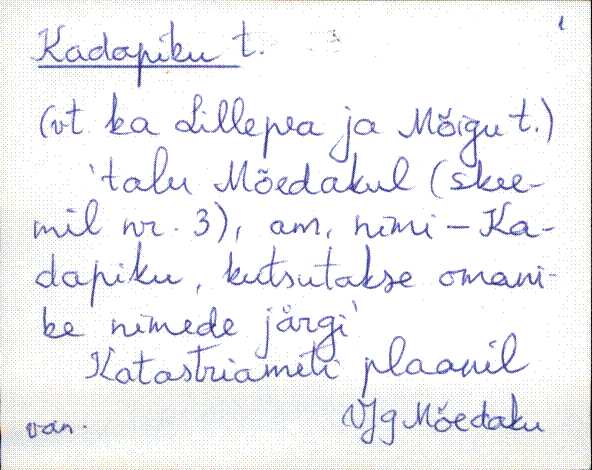 Kadapiku t.
(vt ka Lillepea ja Mõigu t.)
'talu Mõedakul (skee-
mil nr. 3), am. nimi – Ka-
dapiku, kutsutakse omani-
ke nimede järgi'
Katastriameti plaanil
van. VJg Mõedaku